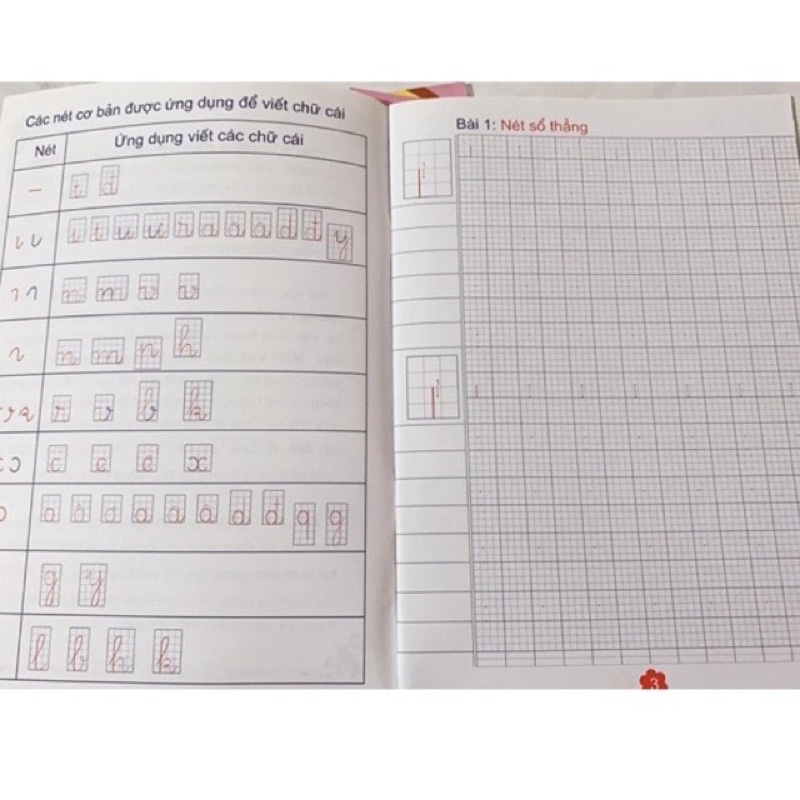 Các nét cơ bản được ứng dụng để viết chữ cái
Nét
Ứng dụng viết các chữ cái
t đ
i t u ư n a ă â d đ y
n m v r
n m p h
r v b k
c e ê x
o ô ơ a ă â d đ q g
g y
l b h k
Bài 1: Nét sổ thẳng
3